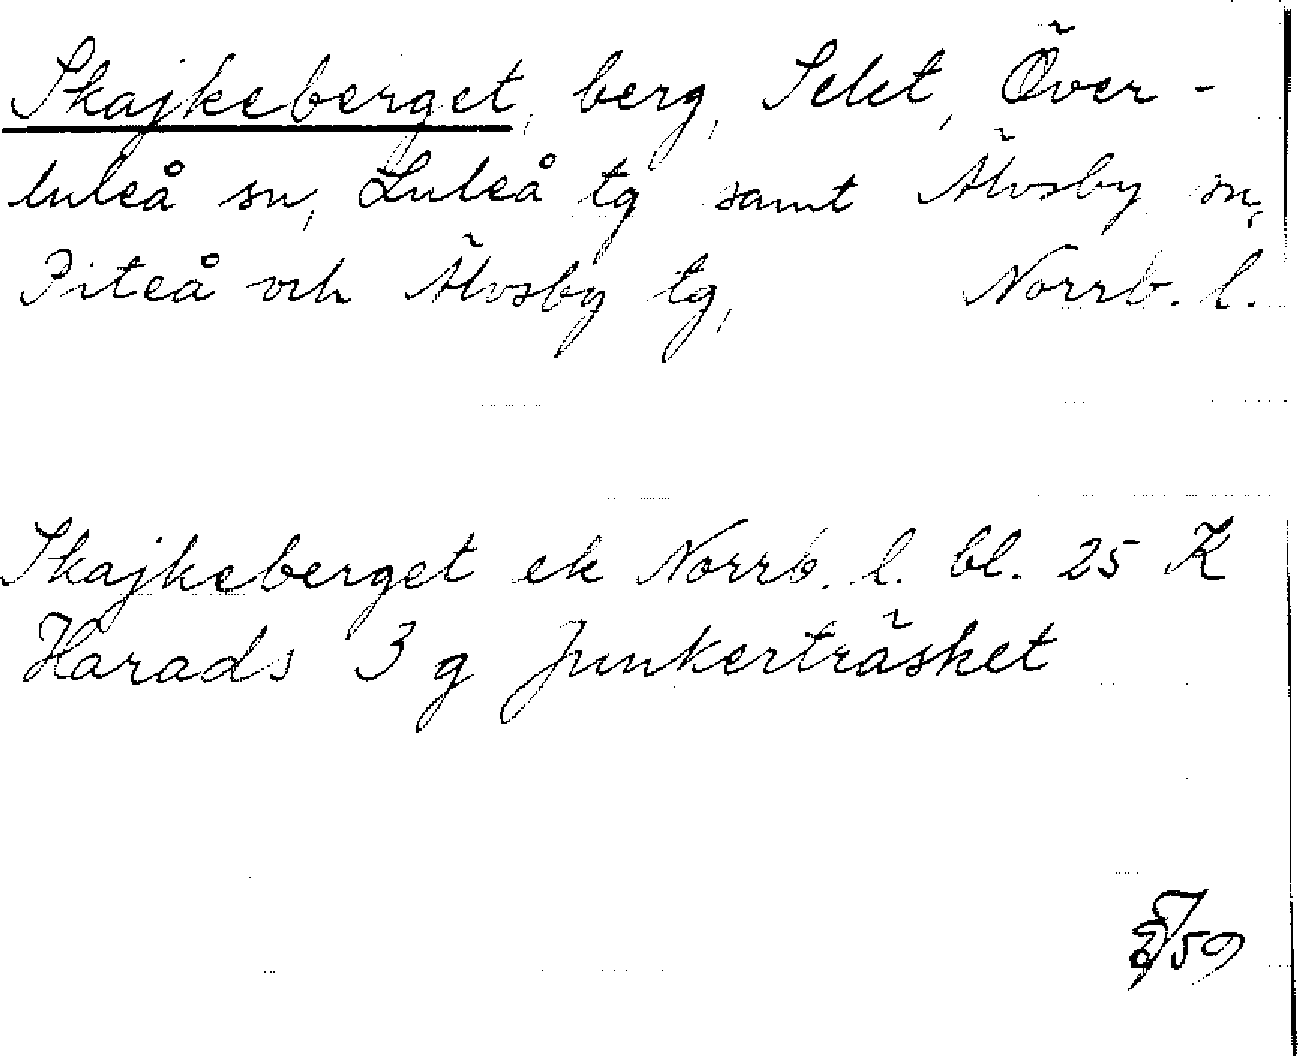 Skajkeberget, berg, Selet, Över-
luleå sn, Luleå tg samt Älvsby sn,
Piteå och Älvsby tg, Norrb. l.
Skajkeberget ek Norrb. l. bl. 25 K
Harads 3 g Junkerträsket
/59